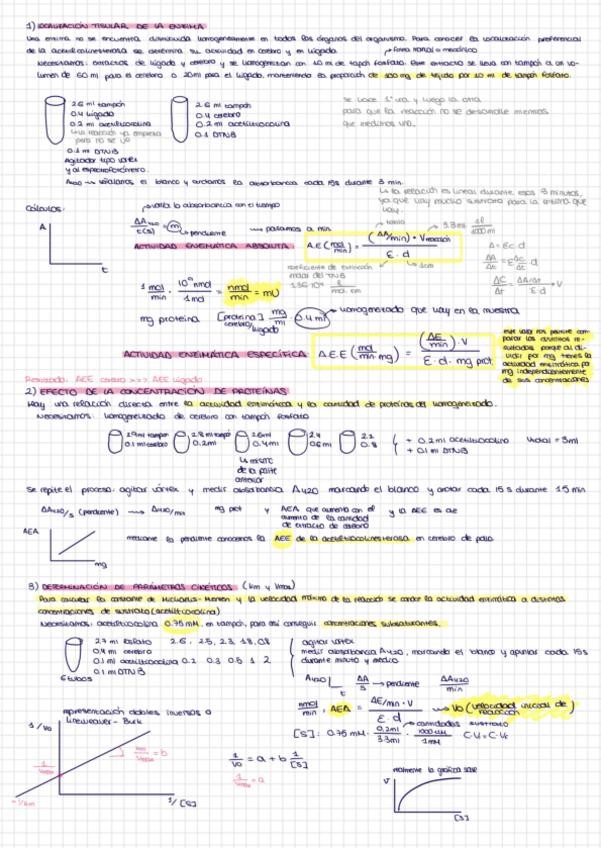 1) LOCALIZACIÓN TISULAR DE LA ENZIMA
Una enzima no se encuentra distribuida homogeneamente en todos los órganos del organismo. Para conocer la localización preferencial
de la acetilcolinesterasa se determina su actividad en cerebro y en hígado.
Necesitamos: extractos de hígado y cerebro y se homogenizan con 10 ml de tapón fosfato. Este extracto se lleva con tampón a un vo-
lumen de 60 ml para el cerebro o 20ml para el hígado, manteniendo la proporción de 100 mg de tejido por 10 ml de tampón fosfato.
2.6 ml tampón
0.4 hígado
0.2 ml acetilticolina
0.1 ml DTNB
Agitador tipo vórtex
y al espectrofotómetro.
2.6 ml tampón
0.4 cerebro
0.2 ml acetilticolina
0.1 DTNB
se hace 1º una y luego la otra
para que la reacción no se desarrolle mientras
que medimos una.
A420 → señalamos el blanco y anotamos la absorbancia cada 15s durante 3 min.
↳ la relación es lineal durante esos 3 minutos,
ya que hay mucho sustrato para la enzima que
hay.
Cálculos:
A
t
ΔA420 / t(s) = m → pendiente → pasamos a min
ACTIVIDAD ENZIMÁTICA ABSOLUTA A.E (mol/min) = (ΔA/min) · V reacción / ε · d
A = εcd
ΔA/Δt = ε Δc/Δt d
ΔC/Δt = ΔA/Δt / ε·d · V
coeficiente de extinción
molar del TNB
1cm
1 mol/min · 10⁹ nmol/1 mol = nmol/min = mU
mg proteína [proteína] cerebro/hígado mg/ml · 0.4 ml → homogenizado que hay en la muestra
ACTIVIDAD ENZIMÁTICA ESPECÍFICA A.E.E (mol/min·mg) = (ΔE/min) · V / ε · d · mg prot.
este valor nos permite com-
parar los distintos re-
sultados porque al di-
vidir por mg tienes la
actividad enzimática por
mg independientemente
de sus concentraciones
Resultado: AEE cerebro >>> AEE hígado
2) EFECTO DE LA CONCENTRACIÓN DE PROTEÍNAS
Hay una relación directa entre la actividad enzimática y la cantidad de proteínas del homogenizado.
Necesitamos: homogenizado de cerebro con tampón fosfato
2.9ml tampón
0.1 ml cerebro
2.8 ml tampón
0.2ml
2.6ml
0.4ml
2.4
0.6 ml
2.2
0.8
+ 0.2 ml acetilticolina
+ 0.1 ml DTNB
Vtotal = 3ml
↳ es el MTC
de la parte
anterior
Se repite el proceso: agitar vórtex y medir absorbancia A420 marcando el blanco y anotar cada 15 s durante 1.5 min
ΔA420/s (pendiente) → ΔA420/min mg prot y AEA que aumenta con el
aumento de la cantidad
de extracto de cerebro
y la AEE es cte
AEA
mg
mediante la pendiente conocemos la AEE de la acetilcolinesterasa en cerebro de pollo.
3) DETERMINACIÓN DE PARÁMETROS CINÉTICOS (Km y Vmax)
Para calcular la constante de Michaelis-Menten y la velocidad máxima de la reacción se conoce la actividad enzimática a distintas
concentraciones de sustrato (acetilticolina)
Necesitamos: acetilticolina 0.75 mM, en tampón, para así conseguir concentraciones subsaturantes.
2.7 ml fosfato 2.6, 2.5, 2.3, 1.8, 0.8
0.4 ml cerebro
0.1 ml acetilticolina 0.2 0.3 0.5 1 2
0.1 ml DTNB
6 tubos
agitar vórtex
medir absorbancia A420, marcando el blanco y apuntar cada 15s
durante minuto y medio
A420
t
ΔA/s → pendiente ΔA420/min
nmol/min, AEA = ΔE/min · V / ε · d → Vo (velocidad inicial de
reacción)
[S]: 0.75 mM · 0.2ml/3.3ml · 1000 uM/1mM
cantidades sustrato
C·V = C·V
representación dobles inversos o
Lineweaver - Burk
1/Vo
1/Vmax
Km/Vmax = b
-1/Km
1/[S]
1/Vo = a + b 1/[S]
1/Vmax = a
realmente la gráfica sale
V
[S]